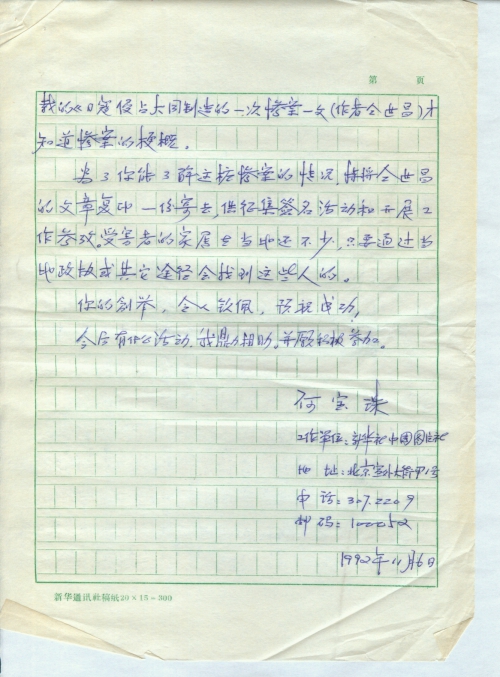 第 页
载的《日寇侵占大同制造的一次惨案》一文(作者仝世昌)才
知道惨案的梗概。
为了你能了解这桩惨案的情况,特将仝世昌
的文章复印一份寄去,供征集签名活动和开展工
作参考。受害者的家属在当地还不少,只要通过当
地政权或其它途径会找到这些人的。
你的创举,令人钦佩,预祝成功!
今后有什么活动,我鼎力相助,并愿积极参加。
何宝珠
工作单位:新华社中国图片社
地 址:北京宣外大街甲1号
电 话:307.2209
邮 码:100052
1992年11月6日
新华通讯社稿纸20×15=300